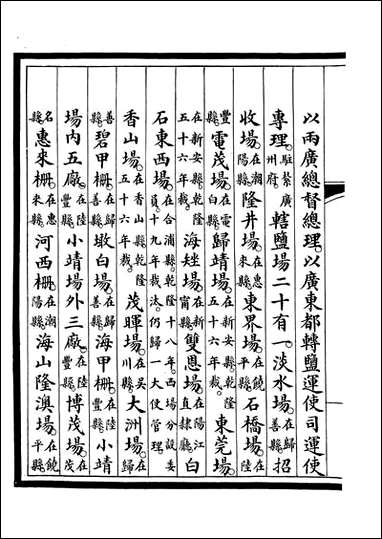 以兩廣總督總理。以廣東都轉鹽運使司運使
專理。駐紮廣州府。轄鹽場二十有一。淡水場。在歸善縣。招
收場。在潮陽縣。隆井場。在惠來縣。東界場。在饒平縣。石橋場。在陸
豐縣。電茂場。在電白縣。歸靖場。在新安縣。乾隆五十六年裁。東莞場。
在新安縣。乾隆五十六年裁。海矬場。在新甯縣。雙恩場。在陽江直隸廳。白
石東西場。在合浦縣。乾隆十八年。西場分設委員。十九年裁汰。仍歸一大使管理。
香山場。在香山縣。乾隆五十六年裁。茂暉場。在吳川縣。大洲場。在歸
善縣。碧甲柵。在歸善縣。墩白場。在歸善縣。海甲柵。在陸豐縣。小靖
場內五廠。在陸豐縣。小靖場外三廠。在陸豐縣。博茂場。在茂
名縣。惠來柵。在惠來縣。河西柵。在潮陽縣。海山隆澳場。在饒平縣。